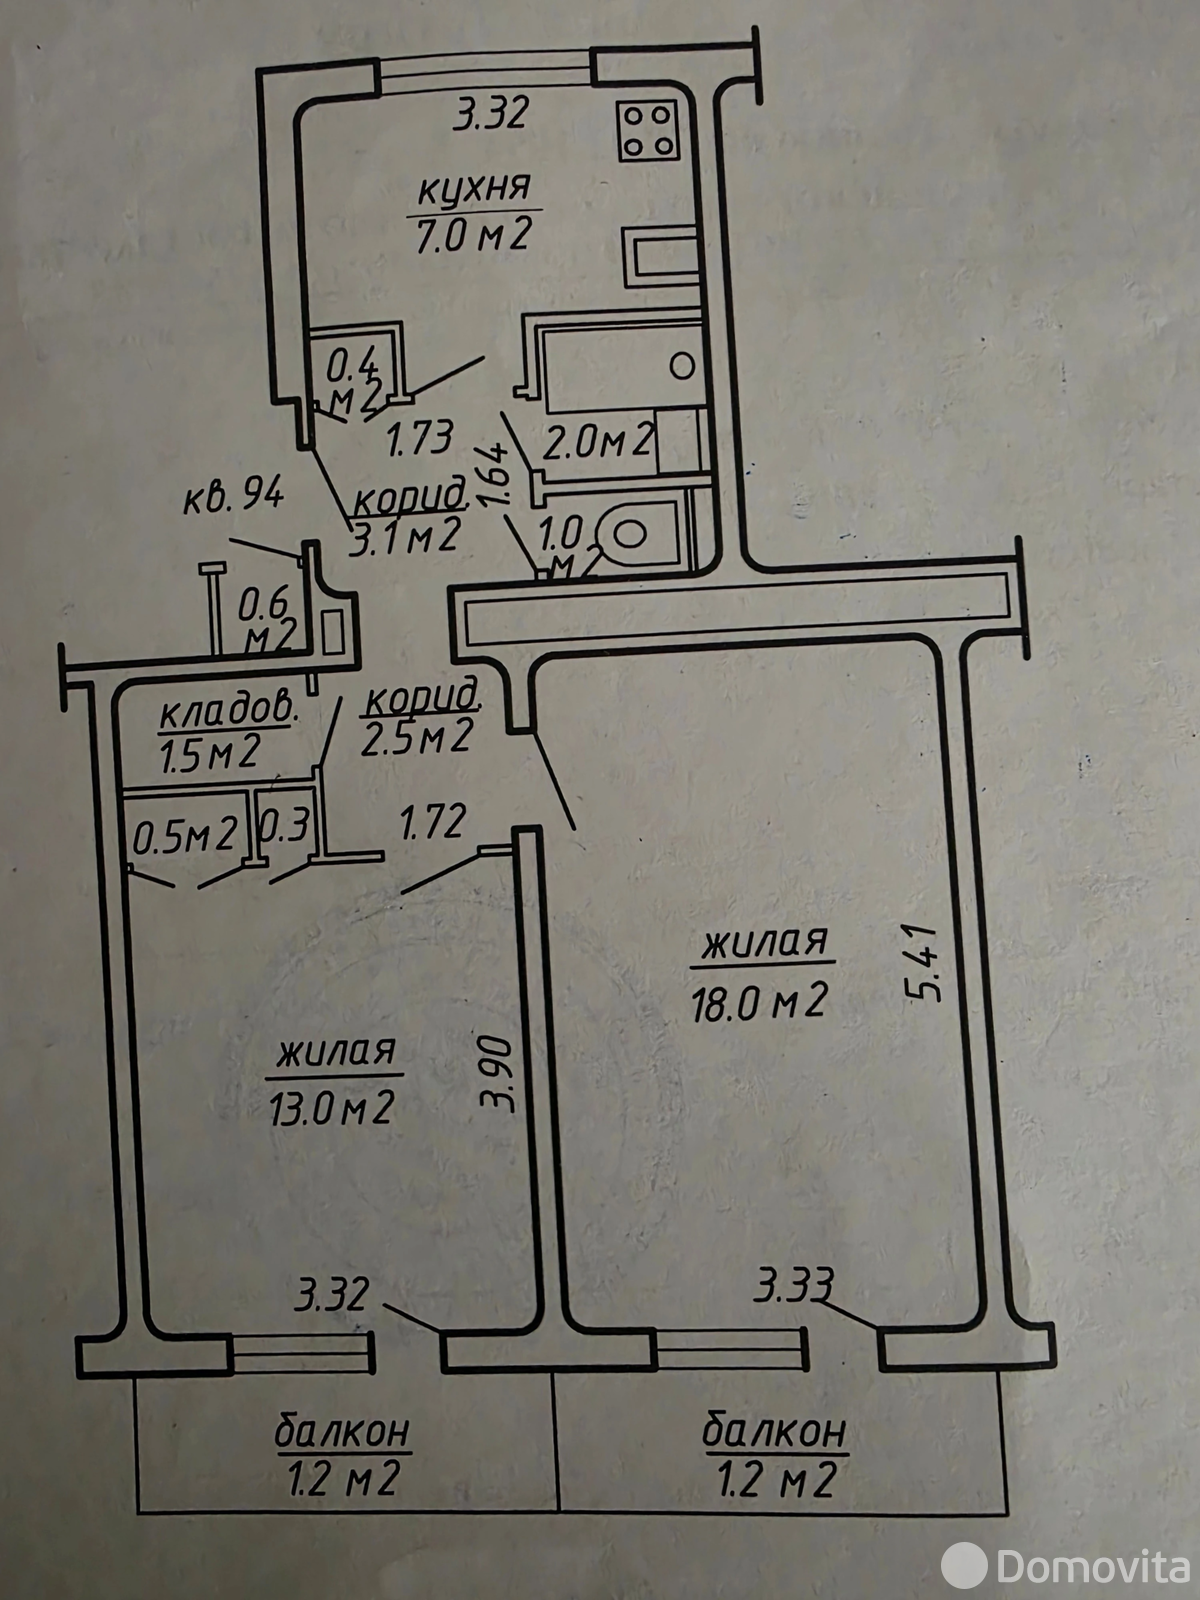 3.32
кухня
7.0 м2
0.4
м2
1.73
1.64
2.0м2
кв.94
корид.
3.1м2
1.0
м2
0.6
м2
кладов.
1.5м2
корид.
2.5м2
0.5м2
0.3
1.72
жилая
18.0 м2
5.41
жилая
13.0м2
3.90
3.32
3.33
балкон
1.2 м2
балкон
1.2 м2
Domovita